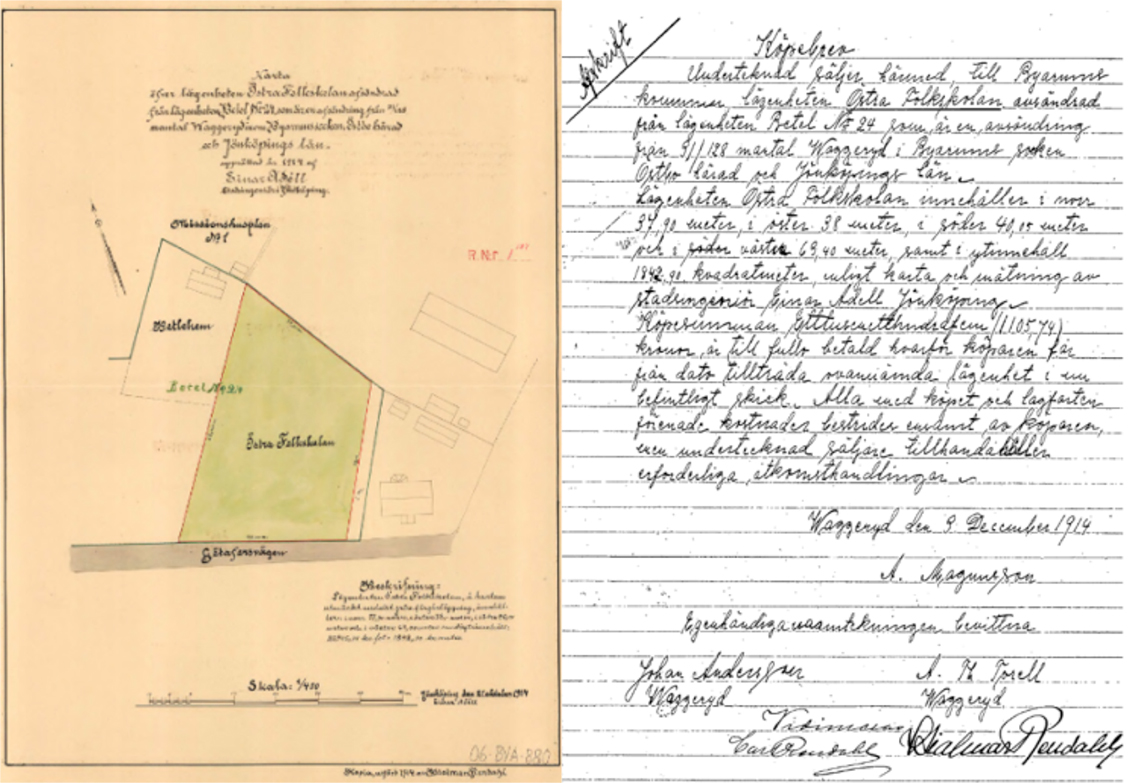 Karta
öfver lägenheten Östra Folkskolan afsöndrad
från lägenheten Betel No 24, som är en afsöndring från 91/128
mantal Waggeryd inom Byarums socken, Östbo härad
och Jönköpings län.
upprättad år 1914 af
Einar Adell
Stadsingeniör i Jönköping.
Missionshusplan
No 1
R.Nr.
Betlehem
Betel No 24
Östra Folkskolan
Götaforsvägen
Beskrifning:
Lägenheten Östra Folkskolan, å kartan
Skala: 1/400
Jönköping den 21 oktober 1914
Einar Adell
06-BYA-880
Kopia, utförd 1914 av Hjalmar Rendahl
Afskrift
Köpebrev
Undertecknad säljer härmed, till Byarums
kommun lägenheten Östra Folkskolan avsöndrad
från lägenheten Betel No 24 som, är en, avsöndring
från 91/128 mantal Waggeryd i Byarums socken
Östbo härad och Jönköpings län.
Lägenheten Östra Folkskolan innehåller i norr
37,90 meter, i öster 38 meter, i söder 40,05 meter
och i söder väster 69,40 meter, samt i ytinnehåll
1842,90 kvadratmeter, enligt karta och mätning av
stadsingeniör Einar Adell Jönköping
Köpesumman Ettusenetthundrafem (1105,74)
kronor, är till fullo betald hvarför köparen får
från dato tillträda ovannämda lägenhet i nu
befintligt skick. Alla med köpet och lagfarten
förenade kostnader bestrider ensamt av köparen,
men undertecknad säljare tillhandahåller
erforderliga, åtkomsthandlingar
Waggeryd den 9 December 1914
A. Magnusson
Egenhändiga namntekningen bevittna
Johan Andersson A. Th Torell
Waggeryd Waggeryd
Vidimeras
Carl Rendahl Hjalmar Rendahl